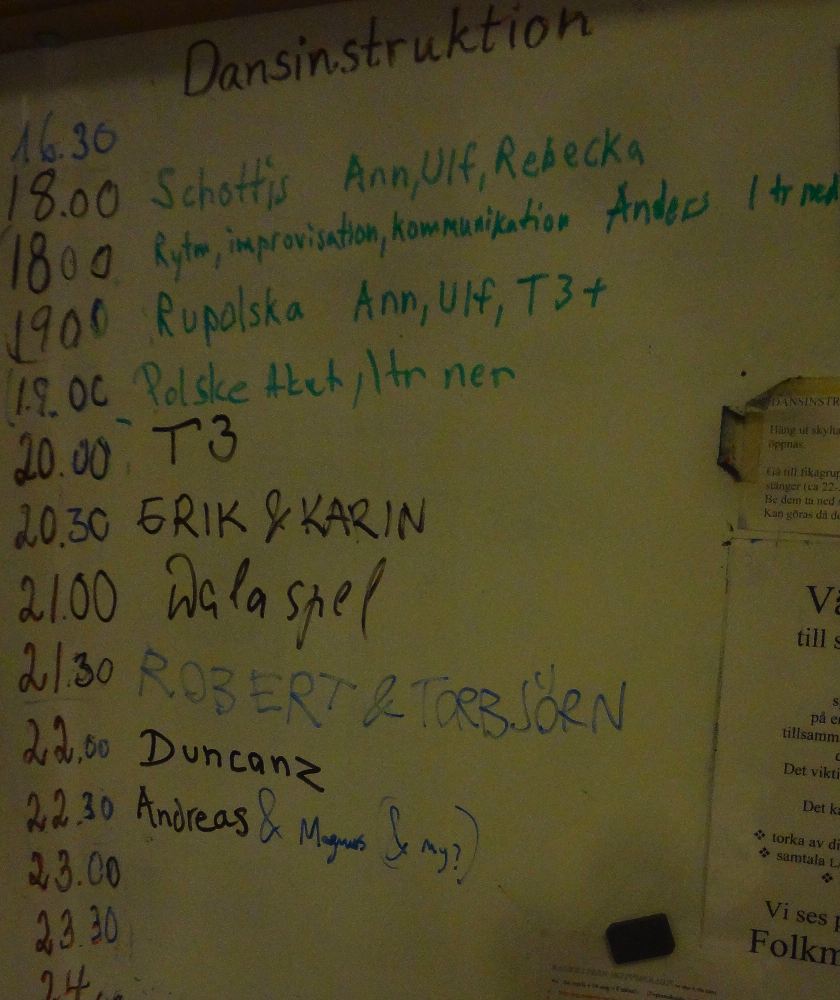 Dansinstruktion
16.30
18.00 Schottis Ann, Ulf, Rebecka
1800 Rytm, improvisation, kommunikation Anders 1 tr ned
1900 Rupolska Ann, Ulf, T3+
19.00 Polske Aket, 1tr ner
20.00 T3
20.30 ERIK & KARIN
21.00 Dalaspel
21.30 ROBERT & TORBJÖRN
22.00 Duncanz
22.30 Andreas & Magnus (& My?)
23.00
23.30
24
DANSINSTR
Häng ut skylta
öppnas.
Gå till fikagrup
stänger (ca 22-
Be dem ta ned
Kan göras då de
Vä
till s
på e
tillsamm
Det vikti
Det ka
❖ torka av di
❖ samtala
❖
Vi ses p
Folkm